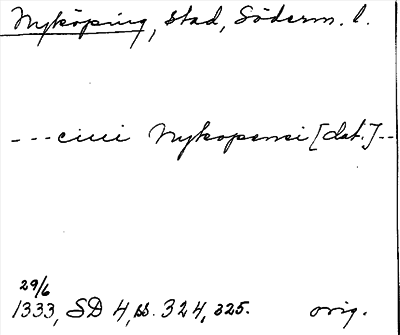 Nyköping, stad, Söderm. l.
---ciui Nykopensi [dat.]--
29/6
1333, SD 4, ss. 324, 325. orig.